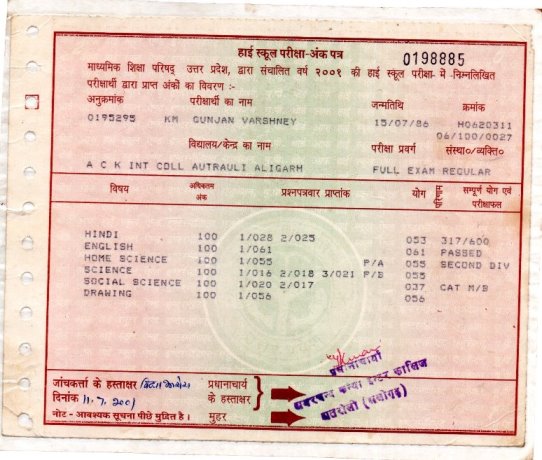 हाई स्कूल परीक्षा-अंक पत्र
0198885
माध्यमिक शिक्षा परिषद् उत्तर प्रदेश, द्वारा संचालित वर्ष २००१ की हाई स्कूल परीक्षा- में -निम्नलिखित
परीक्षार्थी द्वारा प्राप्त अंकों का विवरण :-
अनुक्रमांक परीक्षार्थी का नाम जन्मतिथि क्रमांक
0195295 KM GUNJAN VARSHNEY 15/07/86 H0620311
06/100/0027
विद्यालय/केन्द्र का नाम परीक्षा प्रवर्ग संस्था०/व्यक्ति०
A C K INT COLL AUTRAULI ALIGARH FULL EXAM REGULAR
विषय अधिकतम अंक प्रश्नपत्रवार प्राप्तांक योग परिणाम सम्पूर्ण योग एवं परीक्षाफल
HINDI 100 1/028 2/025 053 317/600
ENGLISH 100 1/061 061 PASSED
HOME SCIENCE 100 1/055 P/A 055 SECOND DIV
SCIENCE 100 1/016 2/018 3/021 P/B 055
SOCIAL SCIENCE 100 1/020 2/017 037 CAT M/B
DRAWING 100 1/056 056
प्रधानाचार्या
कन्या इन्टर कालिज
अतरौली (अलीगढ़)
जांचकर्त्ता के हस्ताक्षर
प्रधानाचार्य के हस्ताक्षर
दिनांक 11.7.2001
मुहर
नोट - आवश्यक सूचना पीछे मुद्रित है।